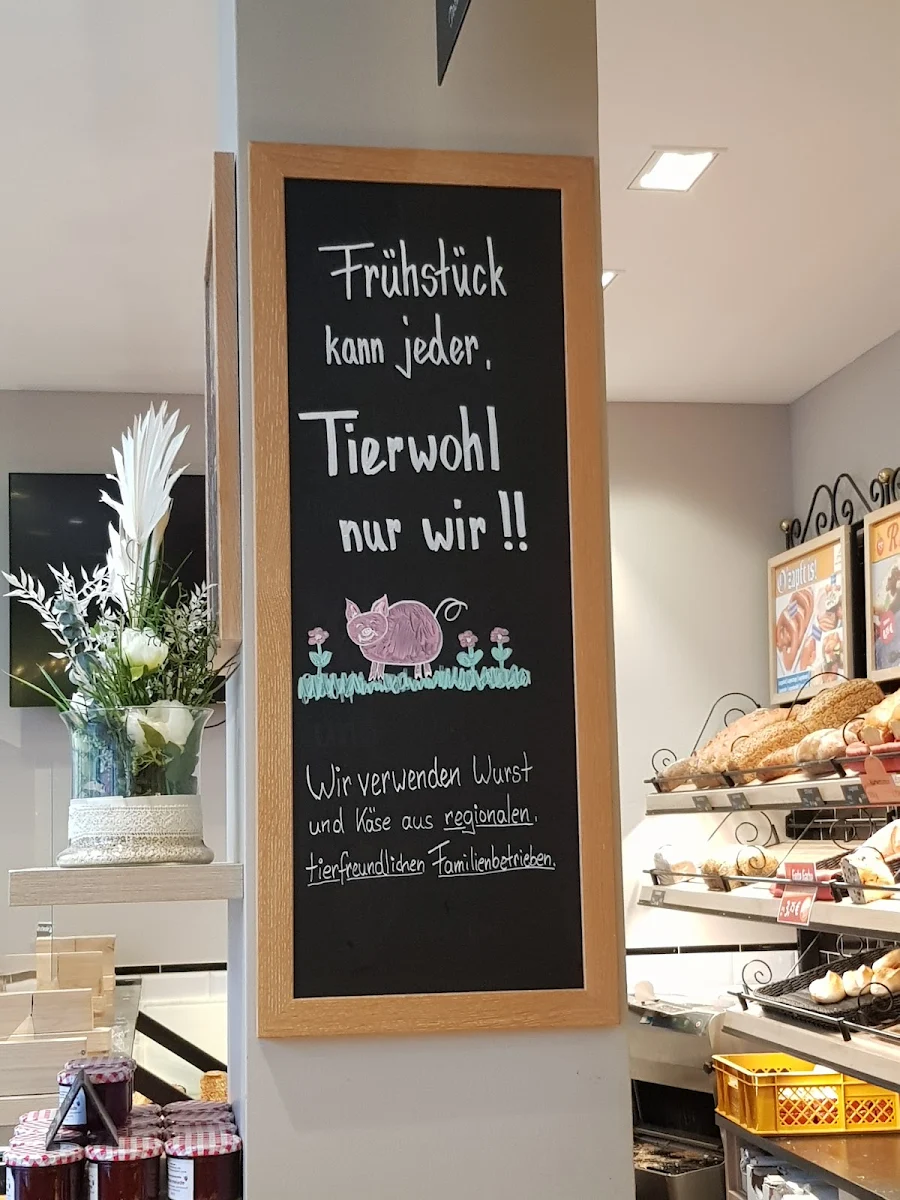 Frühstück
kann jeder,
Tierwohl
nur wir !!
Wir verwenden Wurst
und Käse aus regionalen,
tierfreundlichen Familienbetrieben.
zapft is!